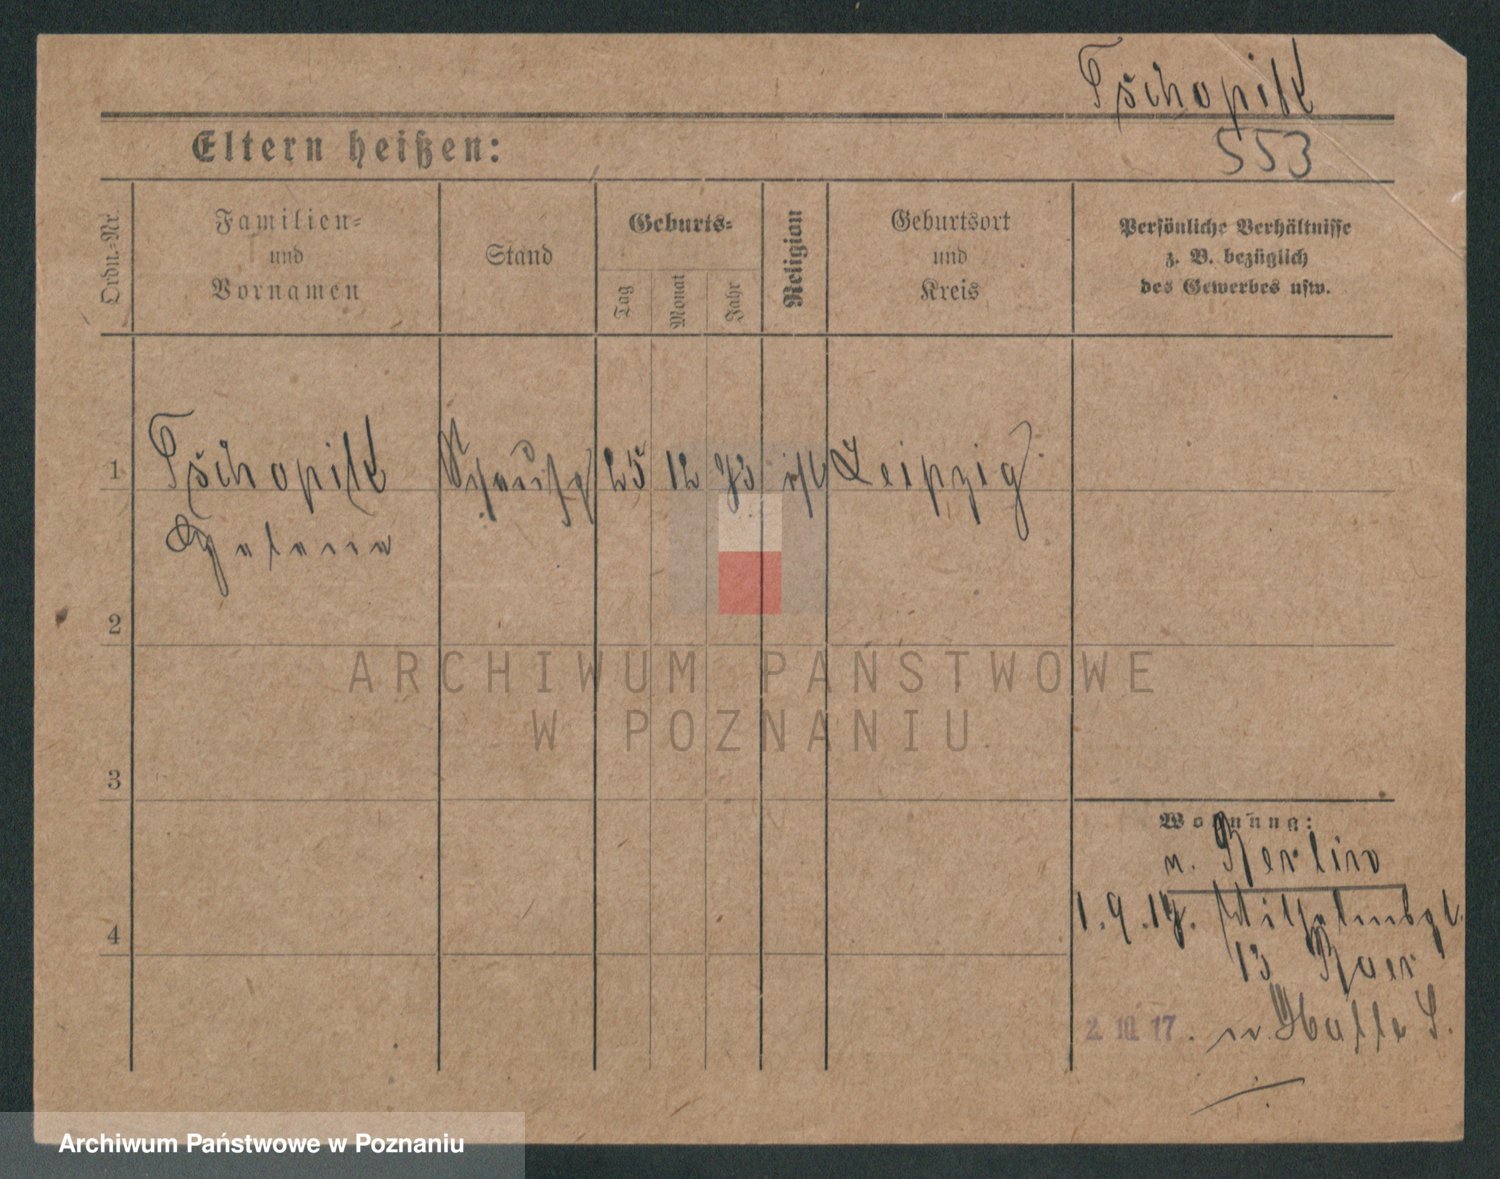 Tschopik
553
Eltern heißen:
Ordn.-Nr.
Familien-
und
Vornamen
Stand
Geburts-
Tag
Monat
Jahr
Religion
Geburtsort
und
Kreis
Persönliche Verhältnisse
z. B. bezüglich
des Gewerbes usw.
1 Tschopik 25 12 93 Leipzig
Helene
2
3
4
Wohnung:
n. Berlin
1.9.17. 13
2. 10. 17. n. Halle S.
ARCHIWUM PAŃSTWOWE
W POZNANIU
Archiwum Państwowe w Poznaniu